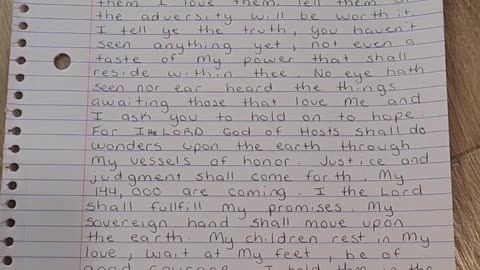 them I love them. Tell them all
the adversity will be worth it.
I tell ye the truth, you haven't
seen anything yet, not even a
taste of My power that shall
reside within thee. No eye hath
seen nor ear heard the things
awaiting those that love Me and
I ask you to hold on to hope.
For I the LORD God of Hosts shall do
wonders upon the earth through
My vessels of honor. Justice and
judgment shall come forth. My
144,000 are coming. I the Lord
shall fullfill My promises. My
Sovereign hand shall move upon
the earth. My children rest in My
love, wait at My feet, be of
good courage. I hold them in the